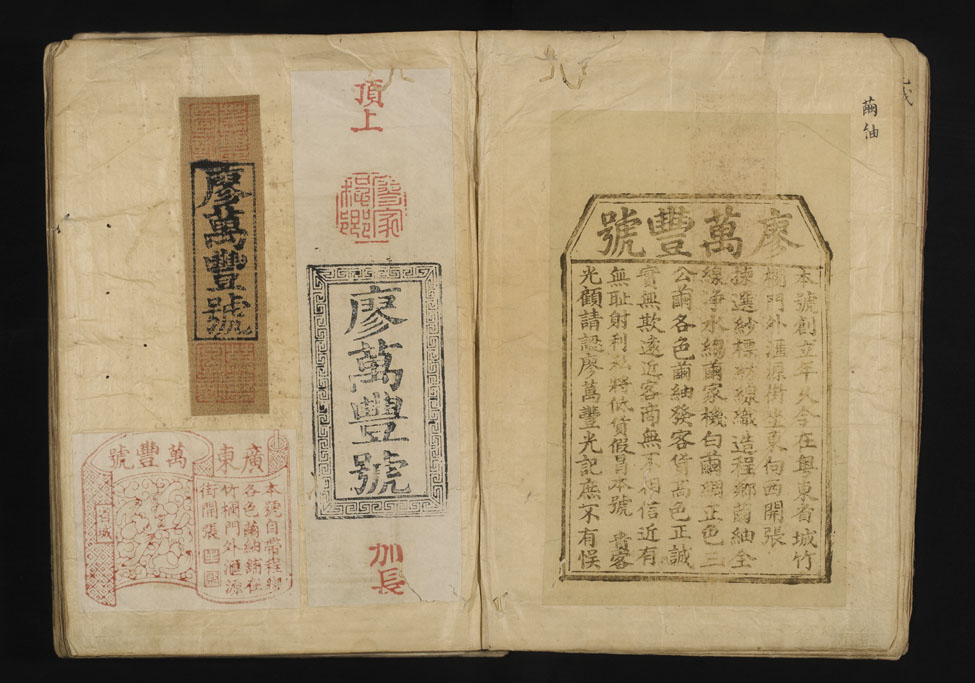 繭紬
廖萬豐號
本號創立年久今在粵東省城竹
欄門外滙源街坐東向西開張
揀選紗標紡線織造程鄉繭紬全
線淨水綿繭家機白繭綢正色三
公繭各色繭紬發客貨高色正誠
實無欺遠近客商無不相信近有
無耻射利私將低貨假冒本號 貴客
光顧請認廖萬豐光記庶不有悞
頂上
廖萬豐號
加長
廖萬豐號
廣東萬豐號
本號自帶程鄉
各色繭紬鋪在
竹欄門外滙源
街開張